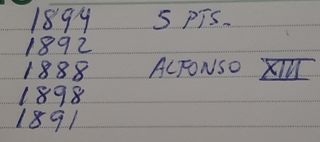 1894 5 PTS.
1892
1888 ALFONSO XIII
1898
1891